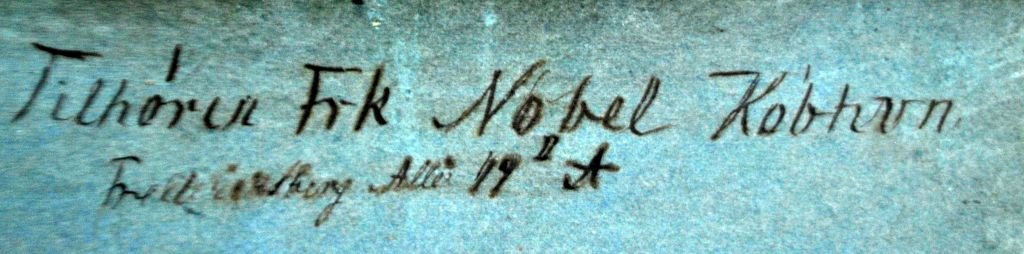 Tilhører Frk Nobel Købhavn
Frederiksberg Allé 19 II A